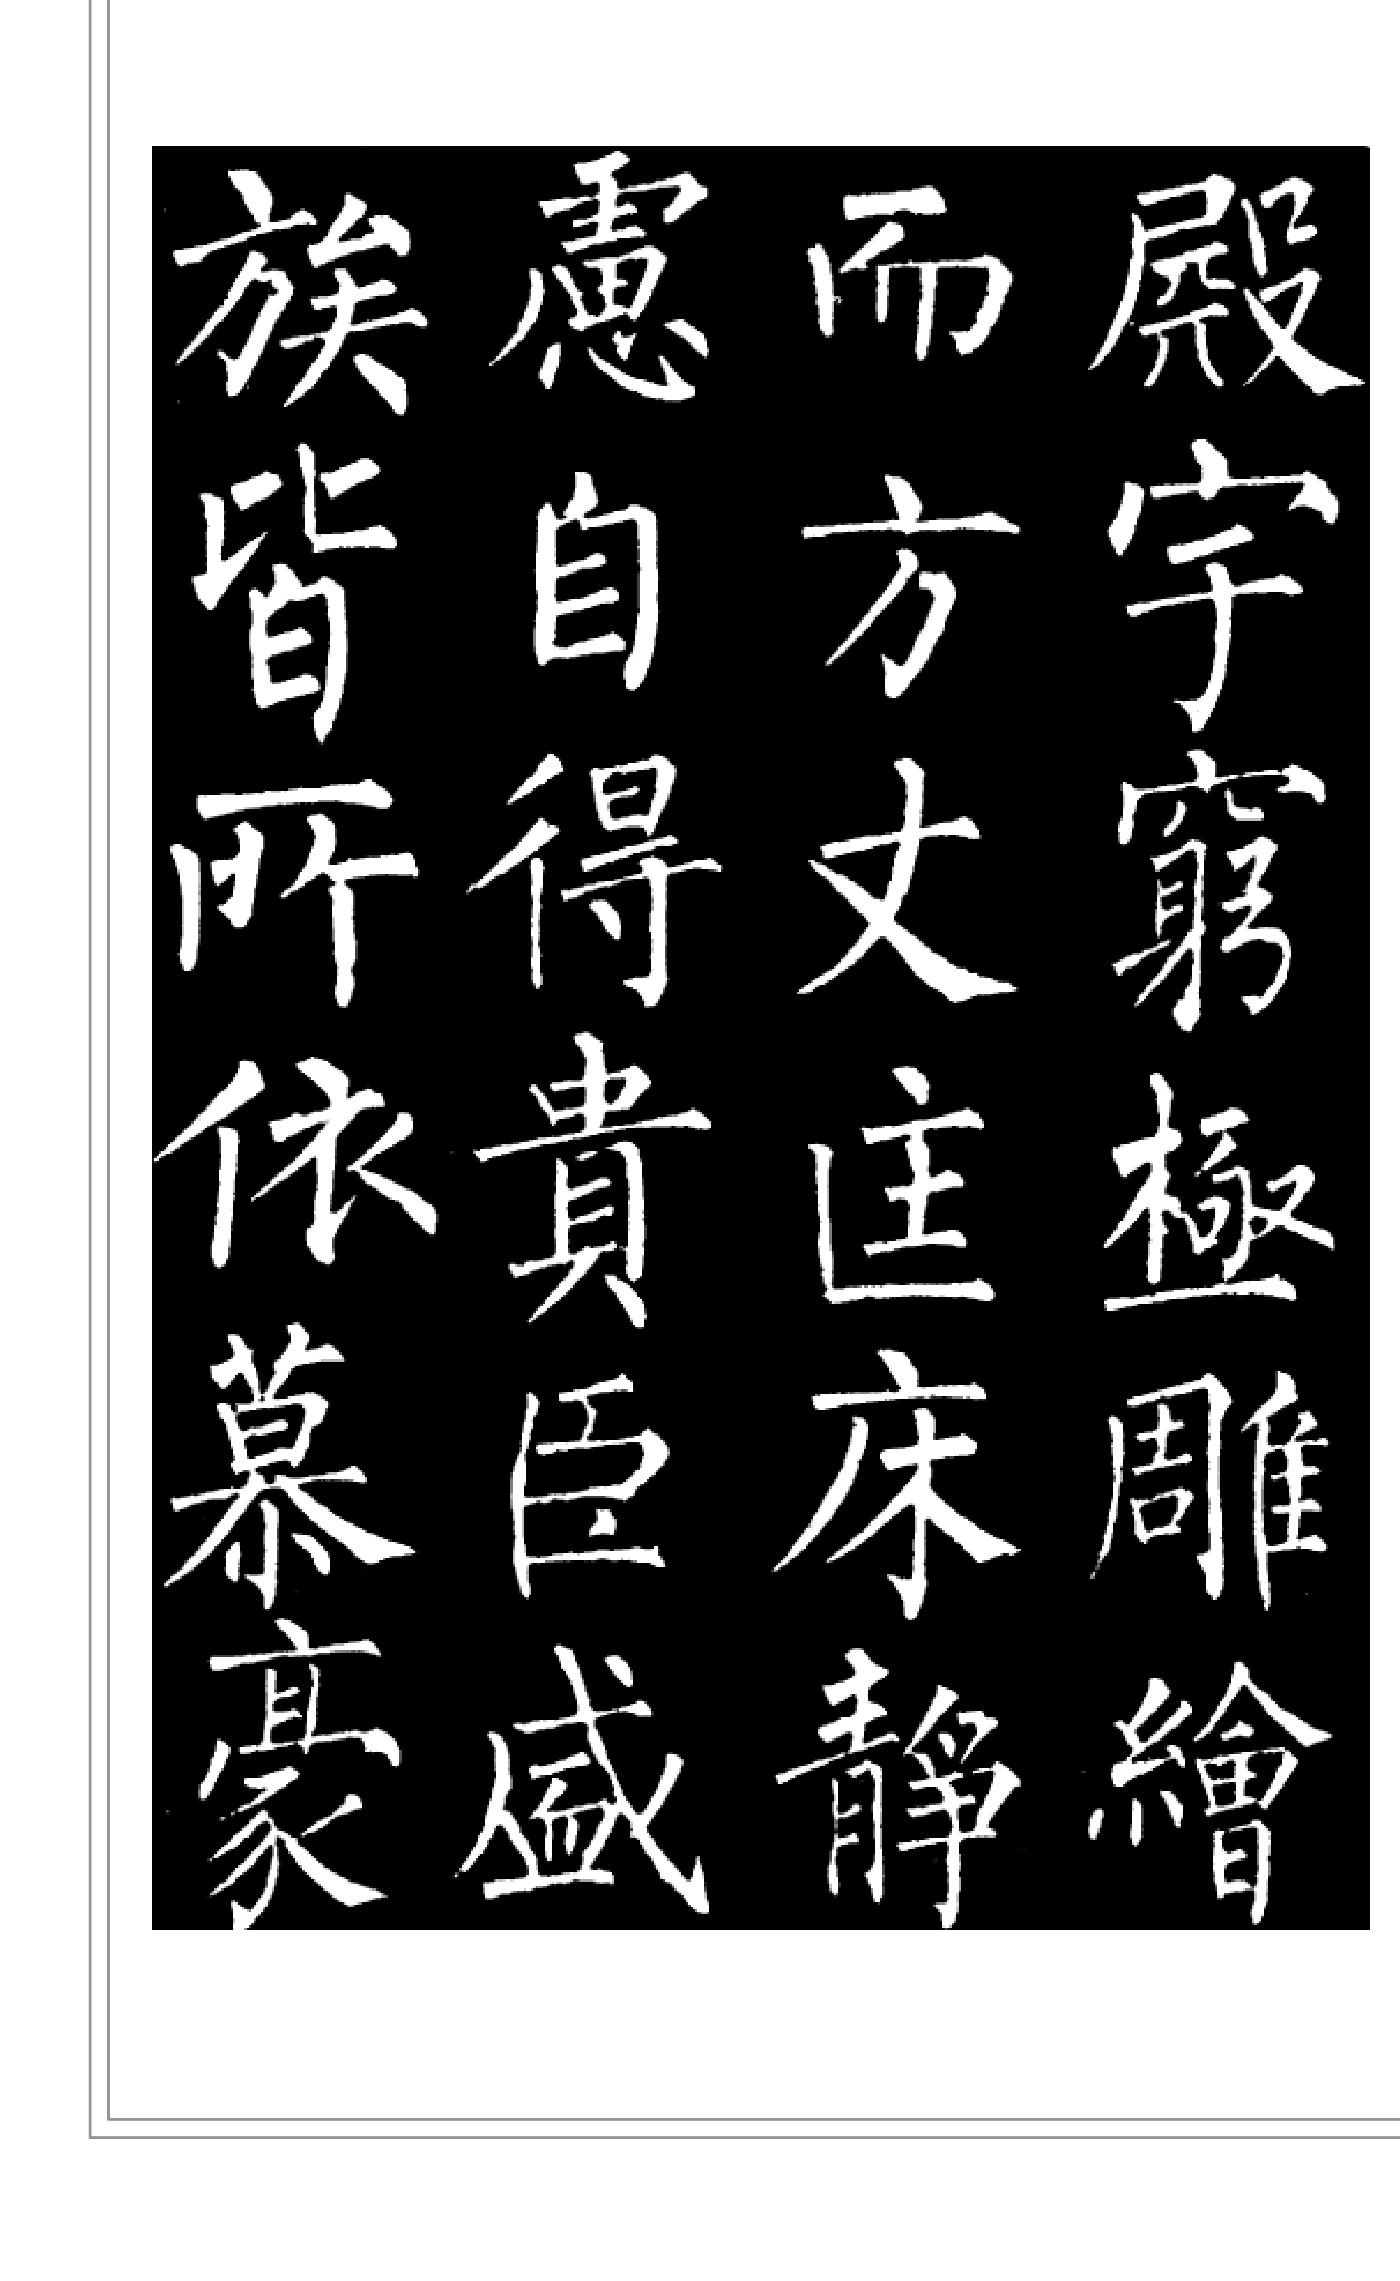 殿宇窮極雕繪
而方丈匡床靜
慮自得貴臣盛
族皆所依慕豪